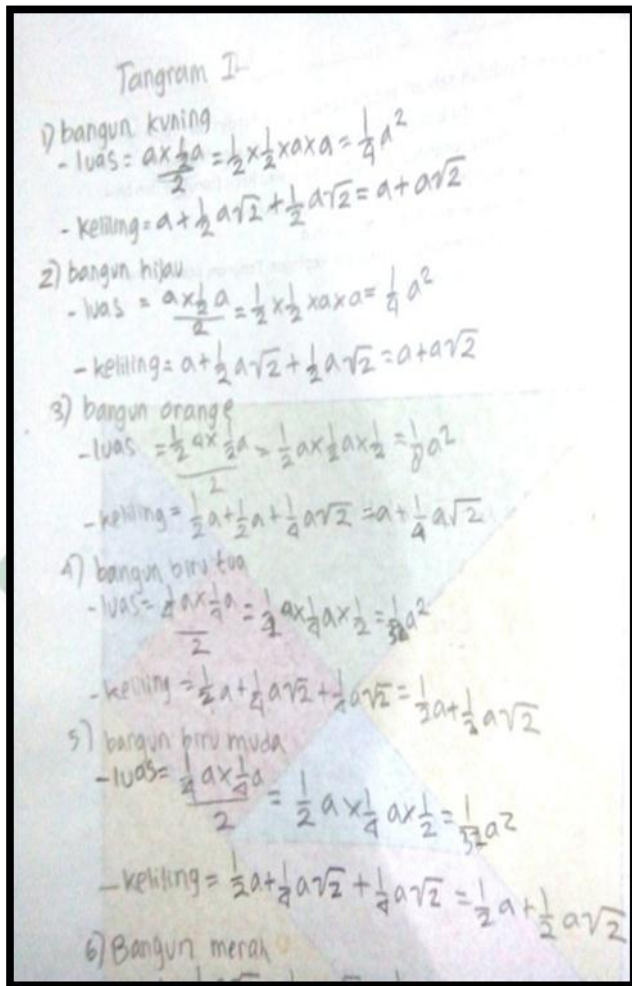 Tangram II
1) bangun kuning
- luas = (a × 1/2 a)/2 = 1/2 × 1/2 × a × a = 1/4 a²
- keliling = a + 1/2 a√2 + 1/2 a√2 = a + a√2
2) bangun hijau
- luas = (a × 1/2 a)/2 = 1/2 × 1/2 × a × a = 1/4 a²
- keliling = a + 1/2 a√2 + 1/2 a√2 = a + a√2
3) bangun orange
- luas = (1/2 a × 1/2 a)/2 = 1/2 a × 1/2 a × 1/2 = 1/8 a²
- keliling = 1/2 a + 1/2 a + 1/4 a√2 = a + 1/4 a√2
4) bangun biru tua
- luas = (1/4 a × 1/4 a)/2 = 1/4 a × 1/4 a × 1/2 = 1/32 a²
- keliling = 1/2 a + 1/4 a√2 + 1/4 a√2 = 1/2 a + 1/2 a√2
5) bangun biru muda
- luas = (1/4 a × 1/4 a)/2 = 1/2 a × 1/4 a × 1/2 = 1/32 a²
- keliling = 1/2 a + 1/4 a√2 + 1/4 a√2 = 1/2 a + 1/2 a√2
6) Bangun merah